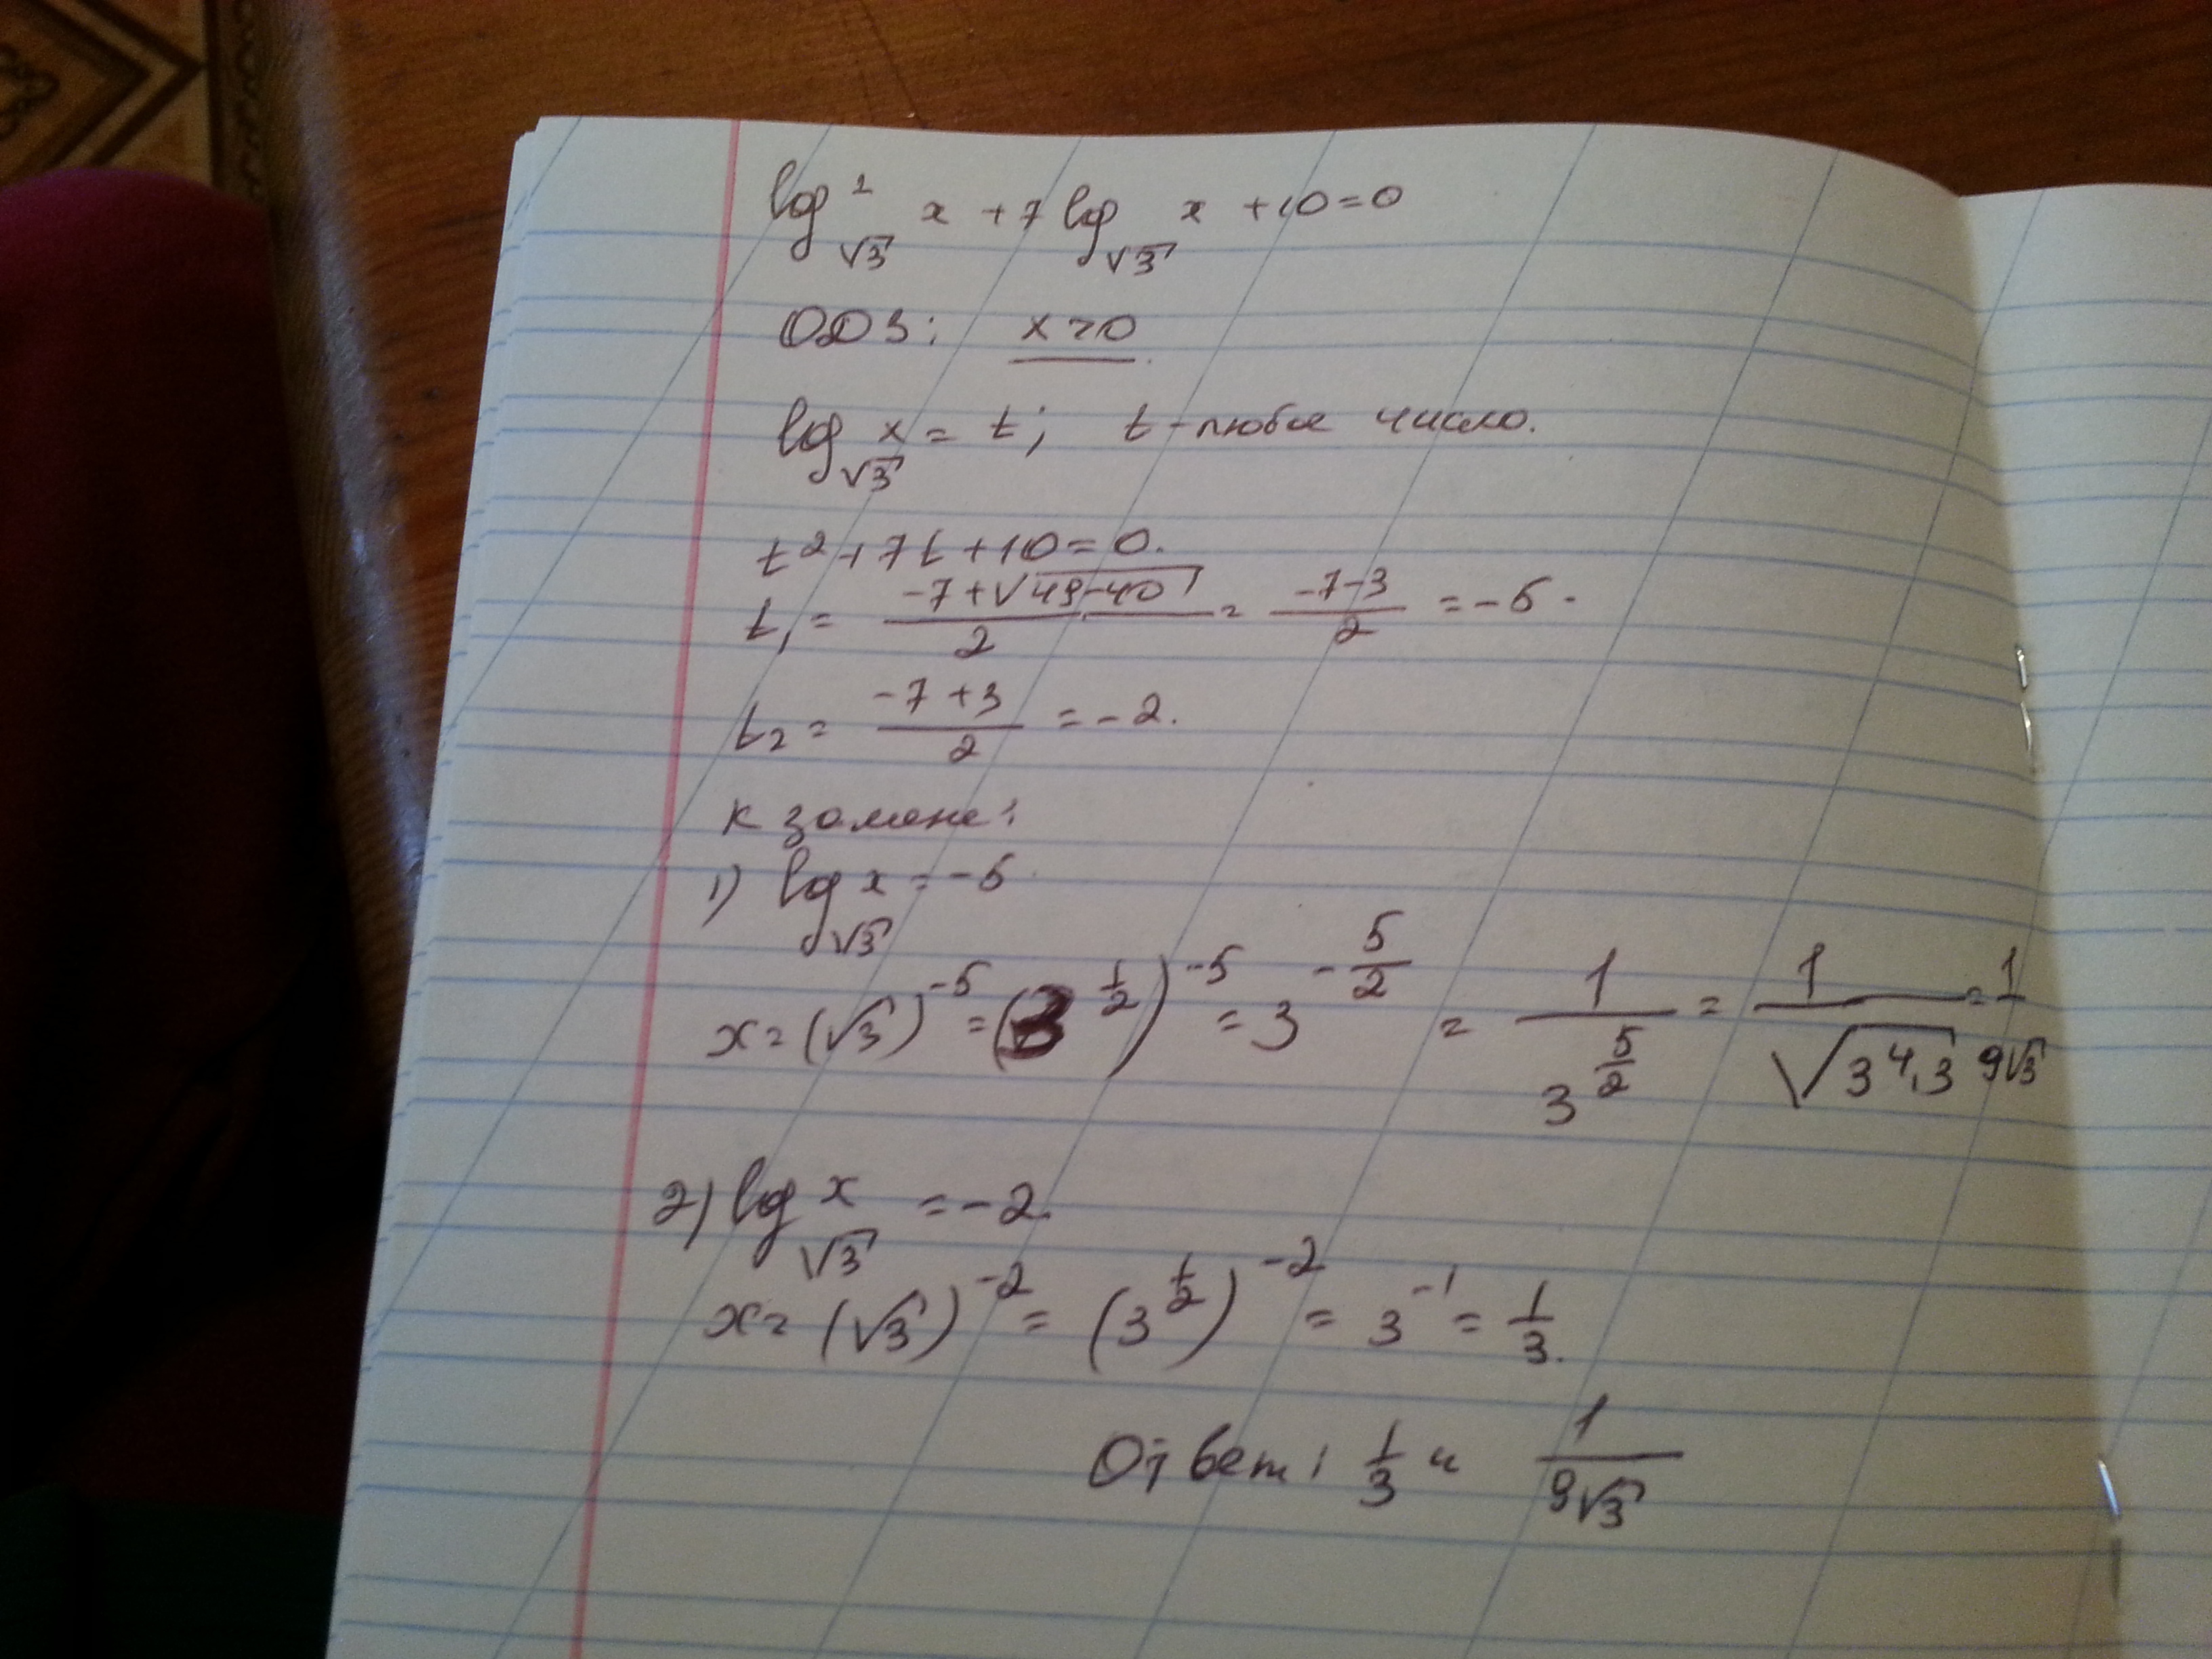 log²_√3 x + 7 log_√3 x + 10 = 0
ОДЗ: x > 0
log_√3 x = t; t - любое число.
t² + 7t + 10 = 0.
t₁ = (-7 + √(49-40))/2 = (-7-3)/2 = -5.
t₂ = (-7 + 3)/2 = -2.
к замене:
1) log_√3 x = -5
x = (√3)^(-5) = (3^(1/2))^(-5) = 3^(-5/2) = 1/3^(5/2) = 1/√(3⁴·3) = 1/9√3
2) log_√3 x = -2
x = (√3)^(-2) = (3^(1/2))^(-2) = 3^(-1) = 1/3.
Ответ: 1/3 и 1/9√3